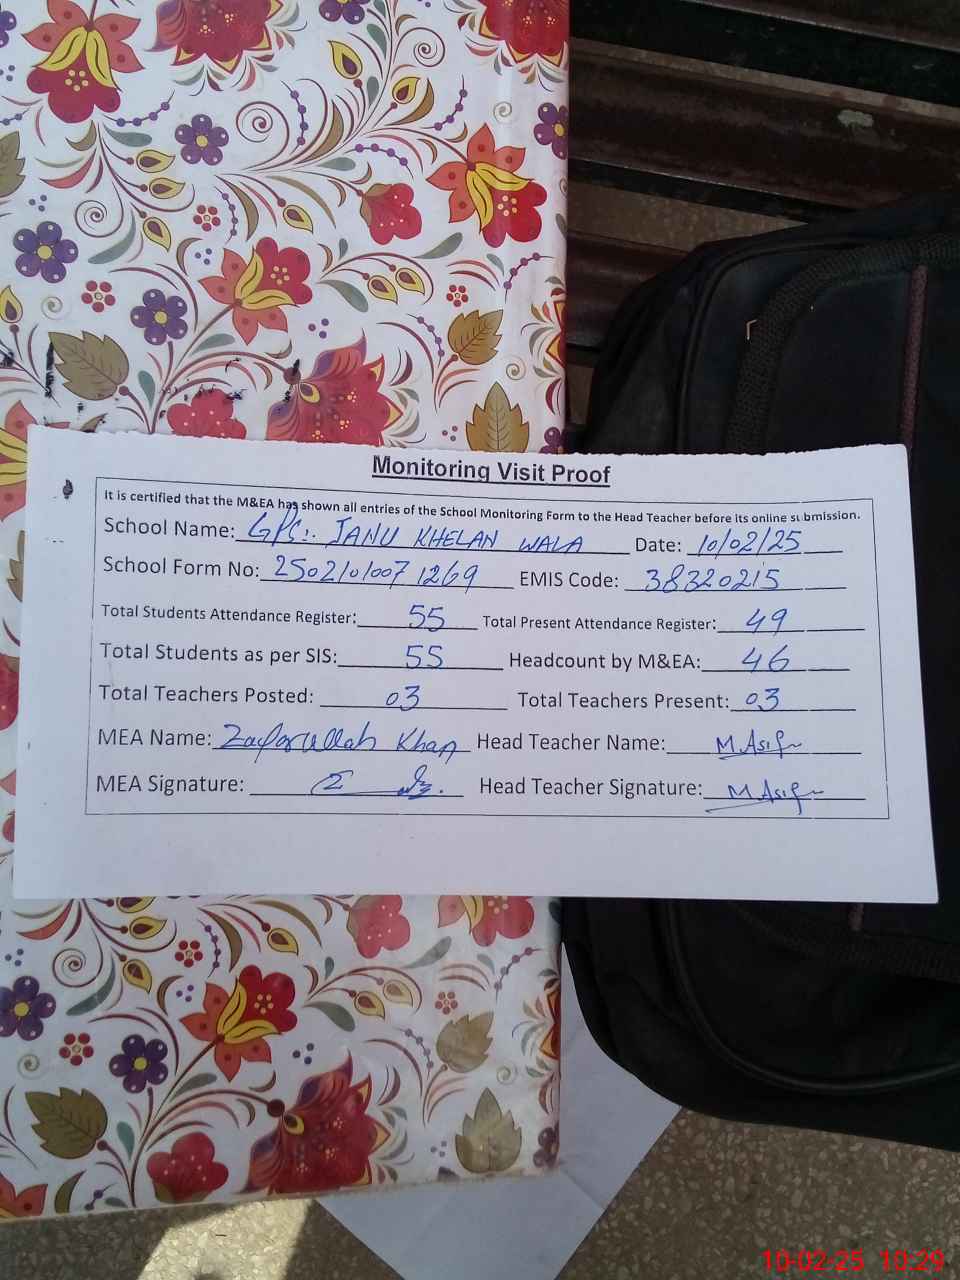 Monitoring Visit Proof
It is certified that the M&EA has shown all entries of the School Monitoring Form to the Head Teacher before its online submission.
School Name: GPS: JANU KHELAN WALA Date: 10/02/25
School Form No: 25021010071269 EMIS Code: 38320215
Total Students Attendance Register: 55 Total Present Attendance Register: 49
Total Students as per SIS: 55 Headcount by M&EA: 46
Total Teachers Posted: 03 Total Teachers Present: 03
MEA Name: Zafarullah Khan Head Teacher Name: M.Asif
MEA Signature: Head Teacher Signature: M Asif
10-02-25 10:29